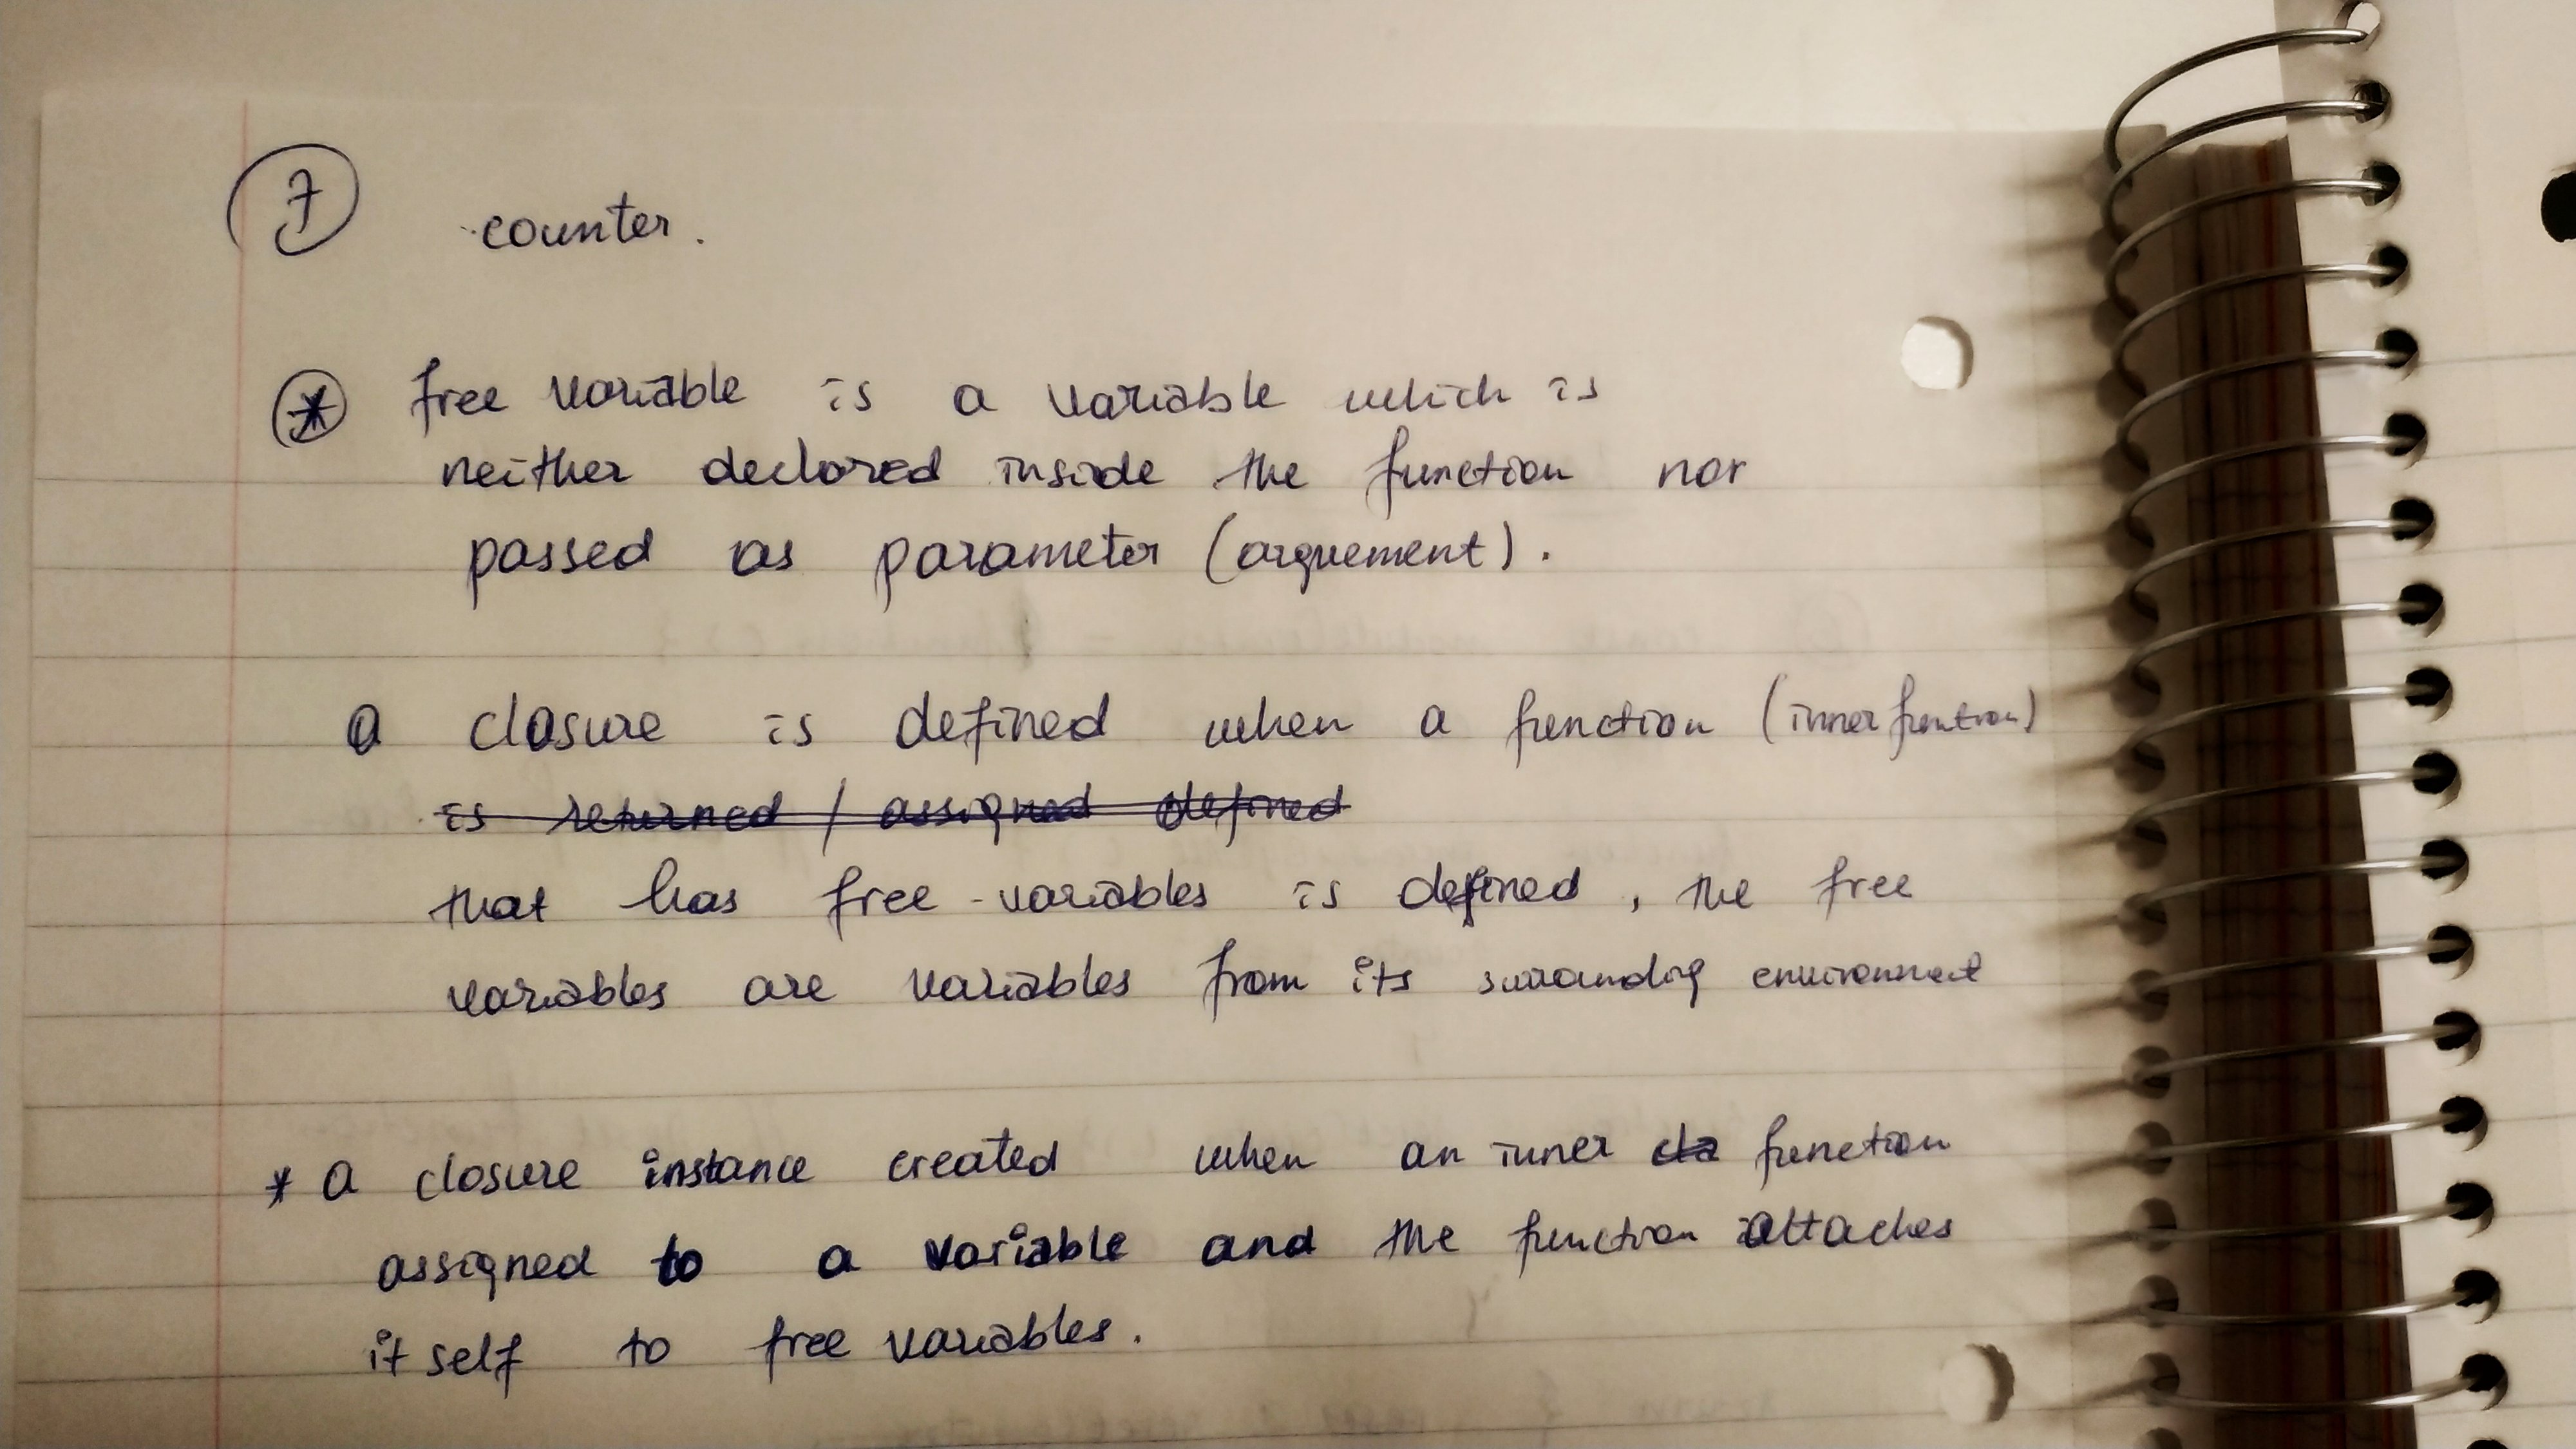 7 counter.
* free variable is a variable which is
neither declared inside the function nor
passed as parameter (arguement).
a closure is defined when a function (inner funtion)
is returned / assigned defined
that has free-variables is defined, the free
variables are variables from its surounding enviroment
* a closure instance created when an inner cla function
assigned to a variable and the function attaches
itself to free variables.